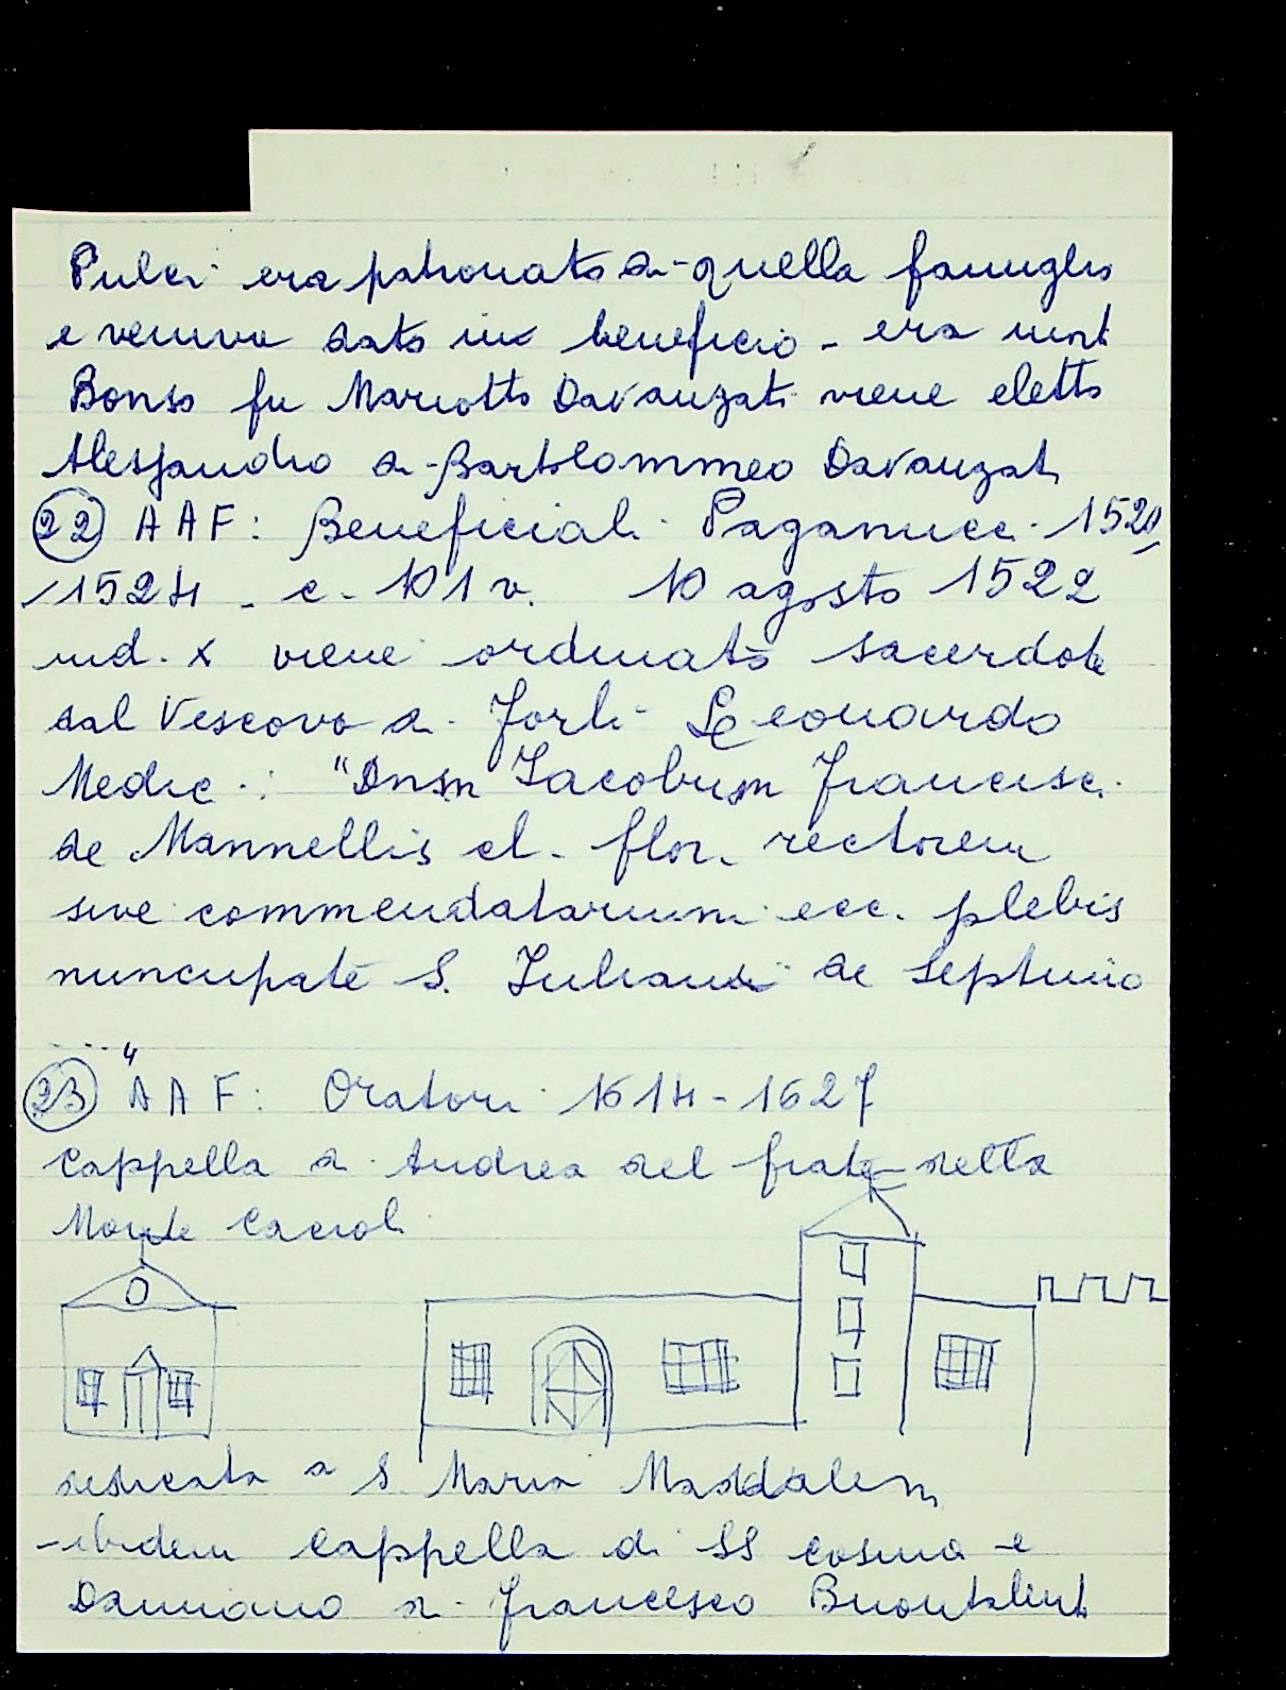 Pulci era patronato di quella famiglia
e veniva dato in beneficio - era mort
Bonso fu Mariotto Davanzati viene eletto
Alessandro di Bartolommeo Davanzati
22 AAF: Beneficiali Paganucci 1520
/1524 - c. 101 v. 10 agosto 1522
ind. X viene ordinato sacerdote
dal Vescovo di Forlì Leonardo
Medici: "Dnsm Iacobum Francisci
de Mannellis cl. flor. rectorem
sive commendatarium ecc. plebis
nuncupate S. Iuliani de Septimo
...."
23 AAF: Oratori 1614-1627
Cappella di Andrea del frate detta
Monte Cacioli
dedicata a S. Maria Maddalena
- ibidem Cappella di SS Cosma e
Damiano di Francesco Buontalenti